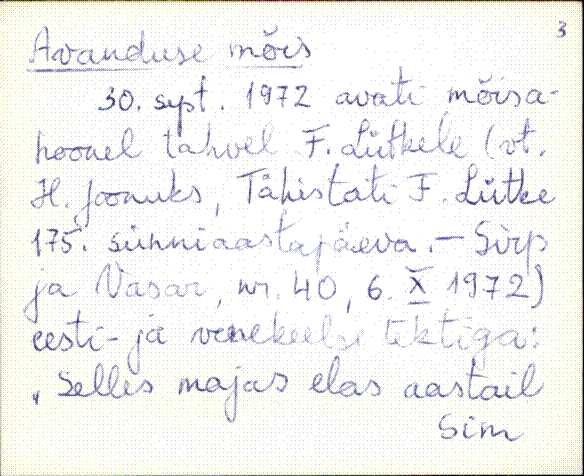 3
Avanduse mõis
30. sept. 1972 avati mõisa-
hoonel tahvel F. Lütkele (vt.
H. Joonuks, Tähistati F. Lütke
175. sünniaastapäeva. – Sirp
ja Vasar, nr. 40, 6. X 1972)
eesti- ja venekeelse tekstiga:
„Selles majas elas aastail
Sim